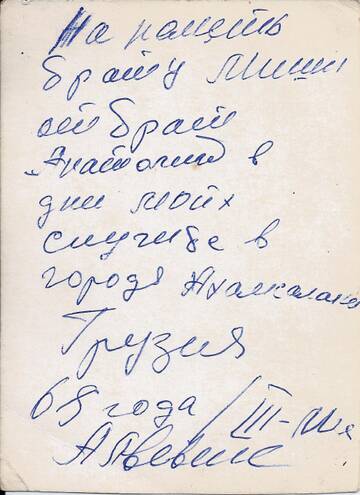 На память
брату Миши
от брат
Анатолий в
дни моих
службе в
городя Ахалкалаки
Грузия
69 года / III-